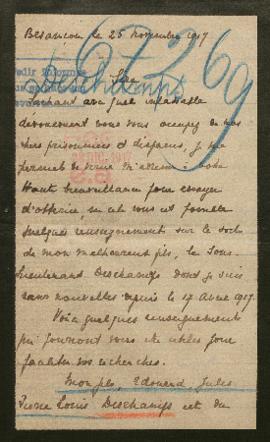 Besançon le 25 novembre 1917
67269
Deschamps
Sire
Sachant avec quel inlassable
dévouement vous vous occupez de nos
chers prisonniers et disparus, je me
permets de venir
haute bienveillance pour essayer
d'obtenir si cela vous est possible
quelques renseignements sur le sort
de mon malheureux fils, le Sous-
Lieutenant Deschamps dont je suis
sans nouvelles depuis le 17 Avril 1917.
Voici quelques renseignements
qui pourront vous être utiles pour
faciliter vos recherches.
Mon fils, Edouard Jules
Pierre Louis Deschamps est du